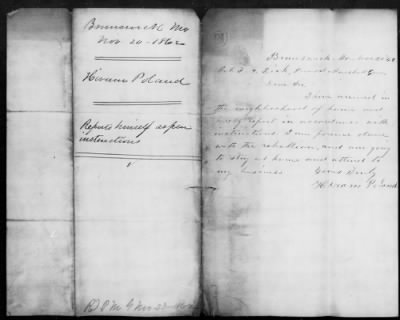 Brunswick Mo
Nov 20 - 1862
Hiram Poland
Reports himself as per
instructions
Brunswick Mo Nov 20 1862
Dick,
Dear Sir
I have arrived in
the neighborhood of home and
report in accordance with
instructions. I am forever done
with the rebellion, and am going
to stay at home and attend to
my business
Yours Truly
Hiram Poland